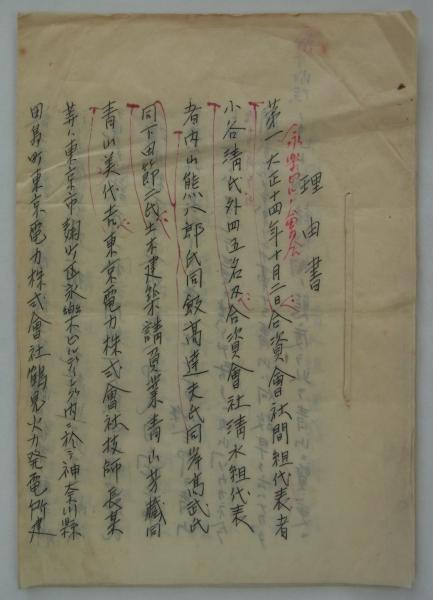 理由書
永楽
第一 大正十四年十月二日合資會社間組代表者
小谷清氏外四五名及合資會社清水組代表
者内山熊八郎氏同飯高達夫氏同岸高武氏
同下田節一氏土木建築請負業青山芳蔵同
青山美代吉東京電力株式會社技師長某
等ハ東京市麹町区永楽
内ニ於テ神奈川縣
田島町東京電力株式會社鶴見火力発電所建